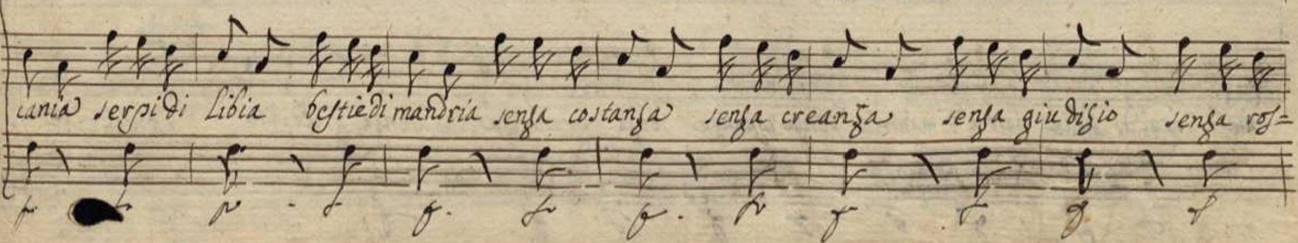 cania serpi di libia bestie di mandria senza costanza senza creanza senza giudizio senza ros=